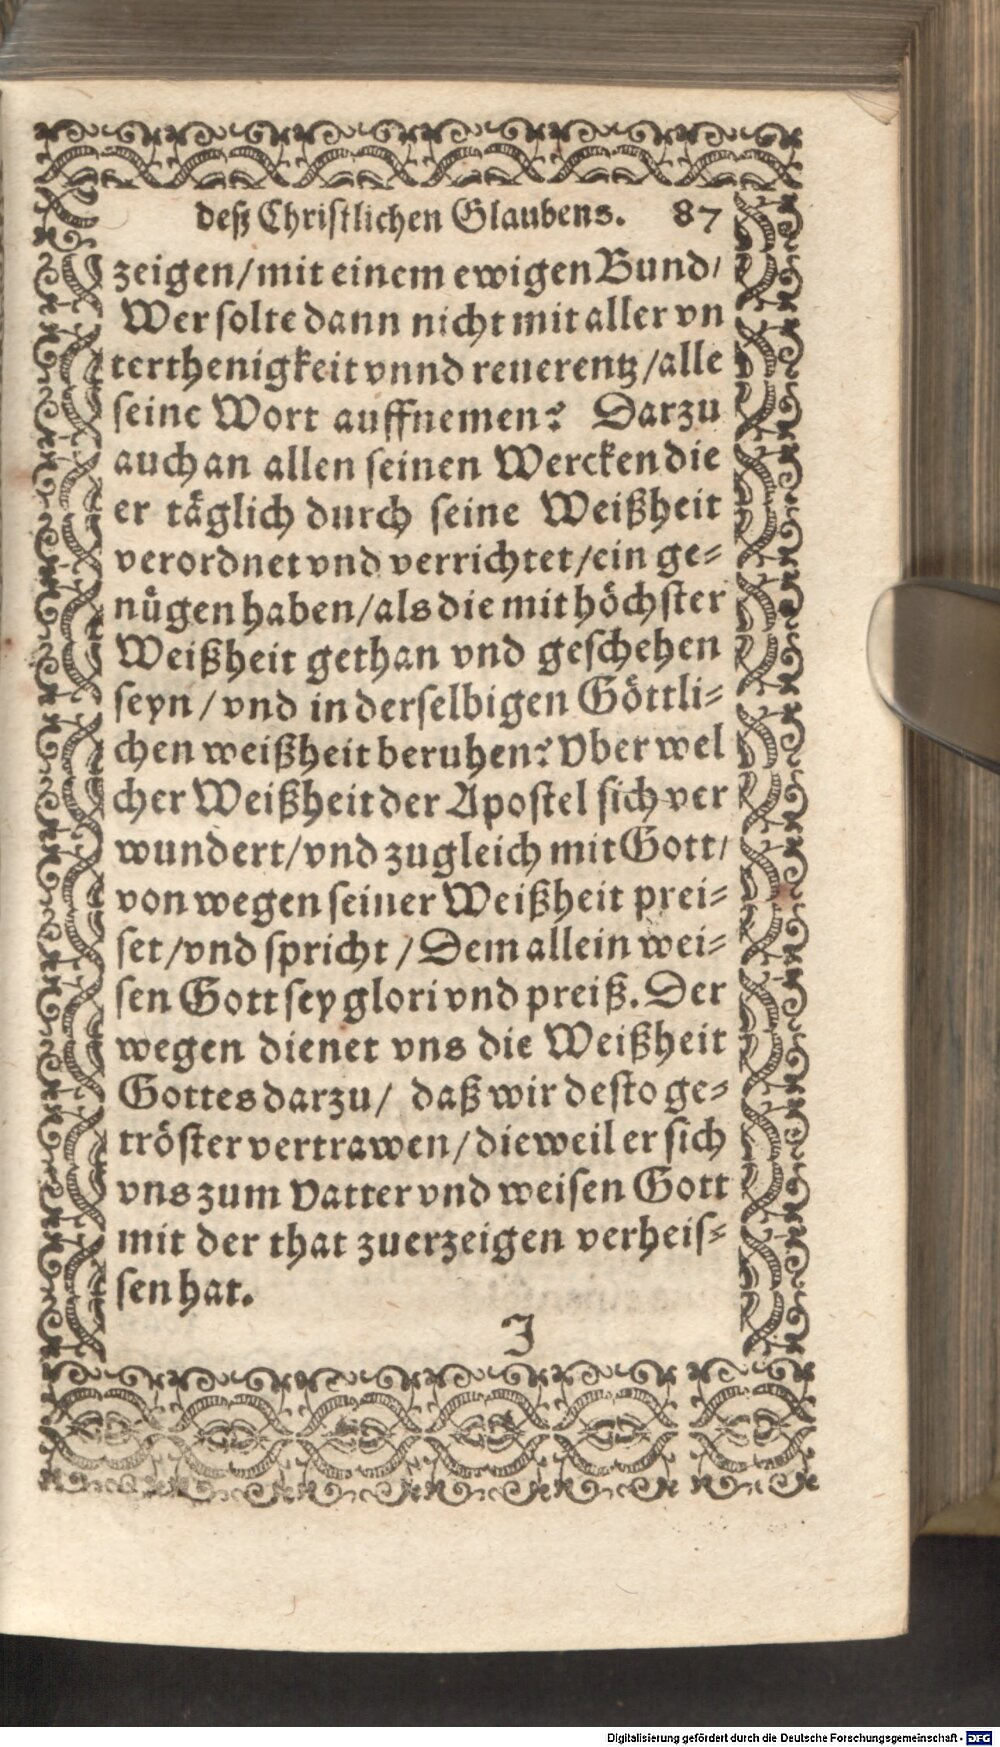 deß Christlichen Glaubens. 87
zeigen/mit einem ewigen Bund/
Wer solte dann nicht mit aller vn
terthenigkeit vnnd reuerentz/alle
seine Wort auffnemen? Darzu
auch an allen seinen Wercken die
er täglich durch seine Weißheit
verordnet vnd verrichtet/ein ge-
nügen haben/als die mit höchster
Weißheit gethan vnd geschehen
seyn/vnd in derselbigen Göttli-
chen weißheit beruhen? Vber wel
cher Weißheit der Apostel sich ver
wundert/vnd zugleich mit Gott/
von wegen seiner Weißheit prei-
set/vnd spricht/Dem allein wei-
sen Gott sey glori vnd preiß. Der
wegen dienet vns die Weißheit
Gottes darzu/ daß wir desto ge-
tröster vertrawen/dieweil er sich
vns zum Vatter vnd weisen Gott
mit der that zuerzeigen verheis-
sen hat.
J
Digitalisierung gefördert durch die Deutsche Forschungsgemeinschaft - DFG